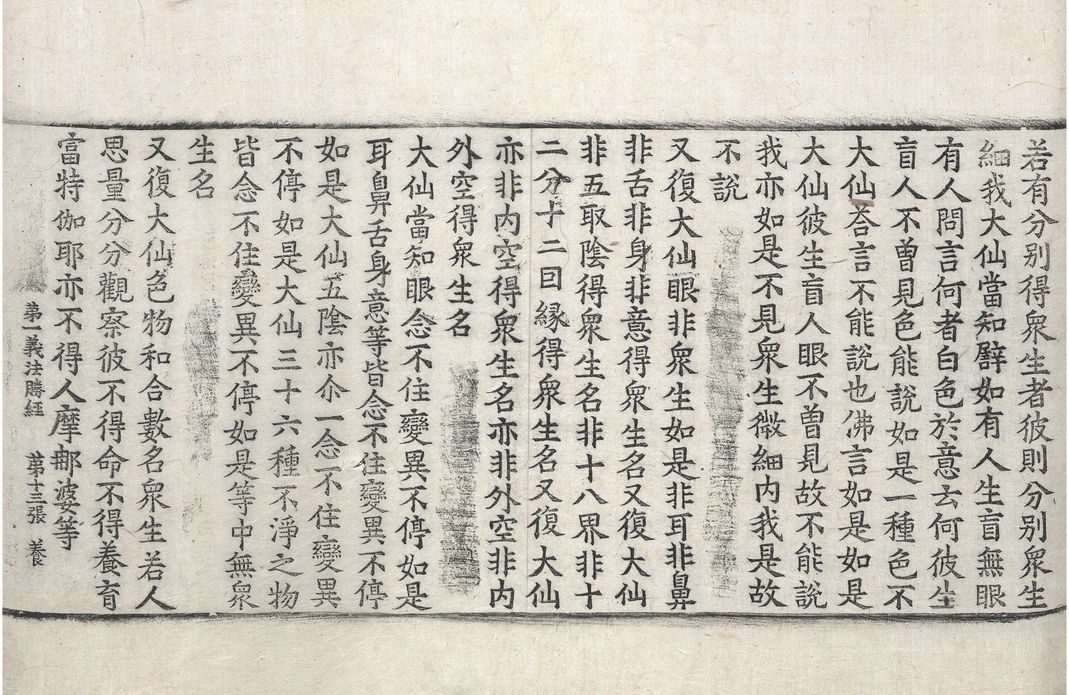 若有分别得衆生者彼則分别衆生
細我大仙當知譬如有人生盲無眼
有人問言何者白色於意云何彼生
盲人不曾見色能說如是一種色不
大仙荅言不能說也佛言如是如是
大仙彼生盲人眼不曾見故不能說
我亦如是不見衆生微細内我是故
不說
又復大仙眼非衆生如是非耳非鼻
非舌非身非意得衆生名又復大仙
非五取陰得衆生名非十八界非十
二分十二因緣得衆生名又復大仙
亦非内空得衆生名亦非外空非内
外空得衆生名
大仙當知眼念不住變異不停如是
耳鼻舌身意等皆念不住變異不停
如是大仙五陰亦尒一念不住變異
不停如是大仙三十六種不淨之物
皆念不住變異不停如是等中無衆
生名
又復大仙色物和合數名衆生若人
思量分分觀察彼不得命不得養育
富特伽耶亦不得人摩那婆等
第一義法勝經 第十三張 養